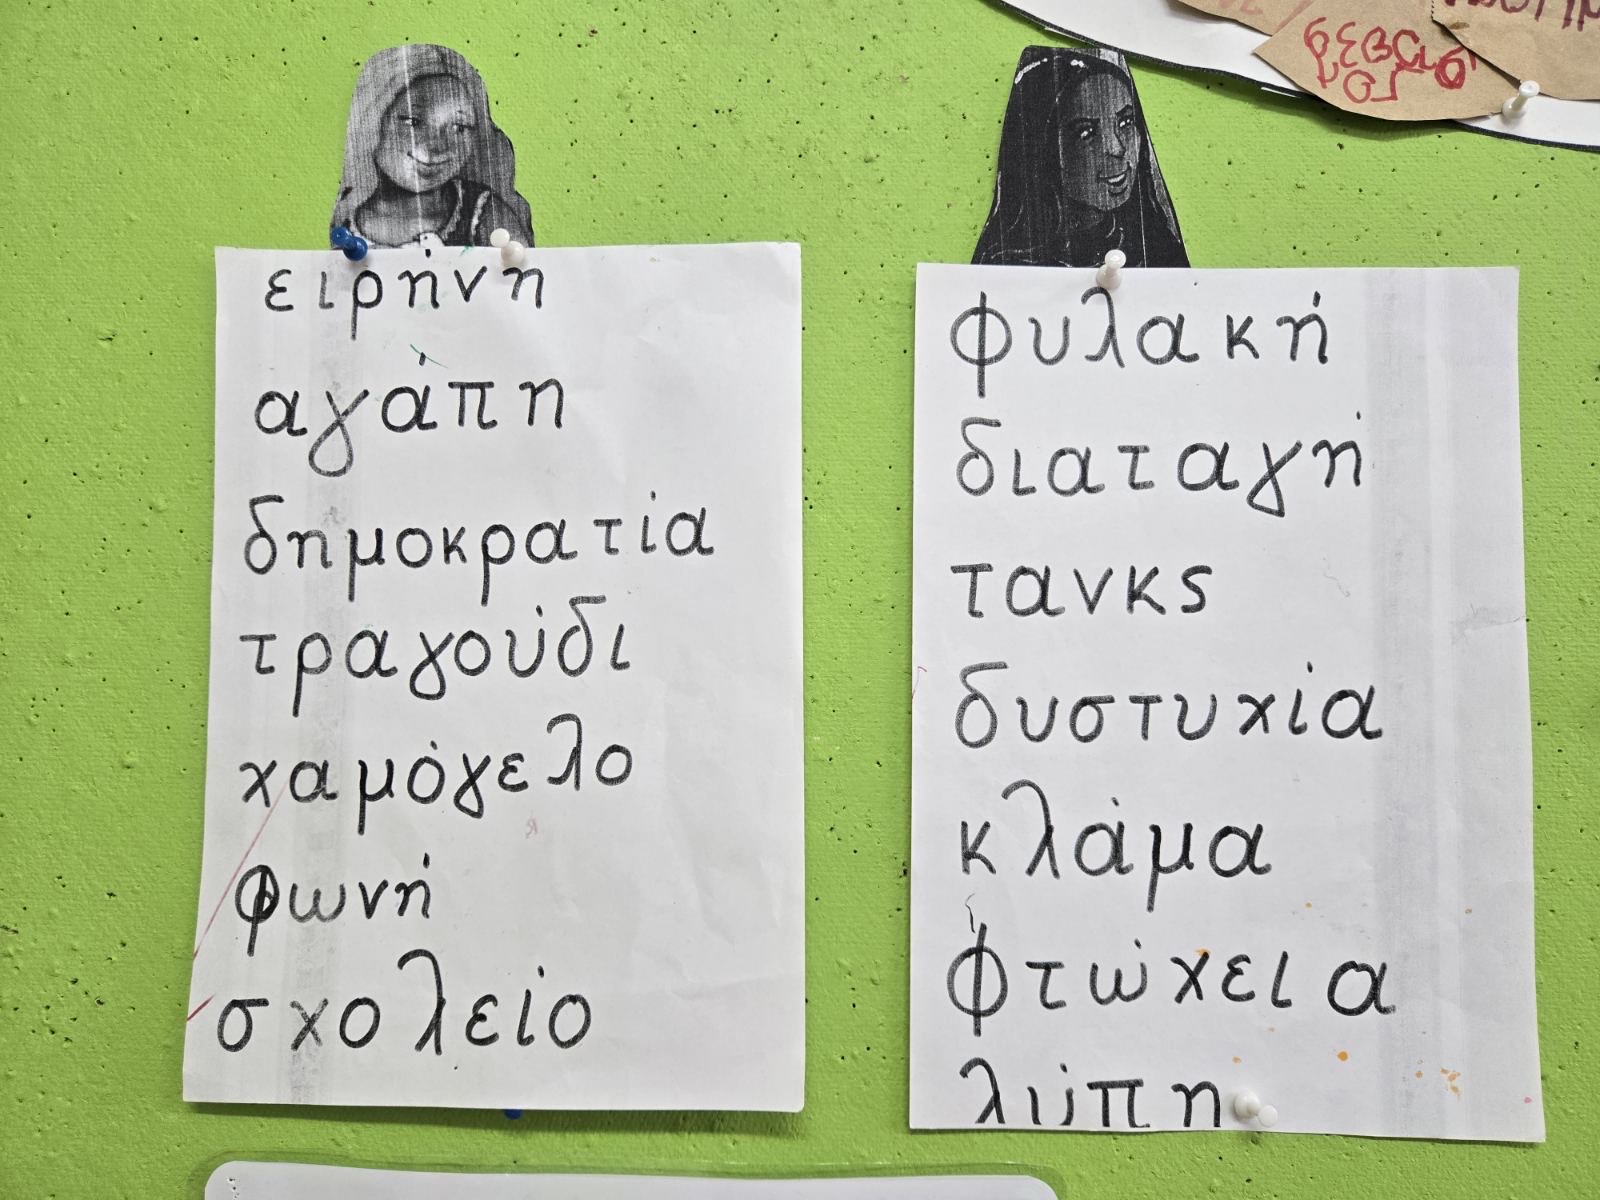 ειρήνη
αγάπη
δημοκρατία
τραγούδι
χαμόγελο
φωνή
σχολείο
φυλακή
διαταγή
τανκς
δυστυχία
κλάμα
φτώχεια
λύπη